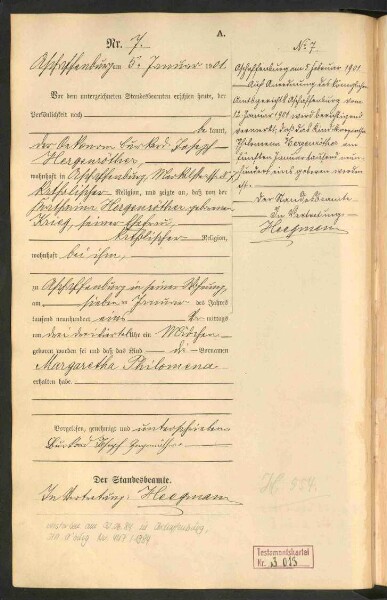 A.
Nr. 7.
Aschaffenburg am 5. Januar 1901.
Vor dem unterzeichneten Standesbeamten erschien heute, der
Persönlichkeit nach
kannt,
der Oekonom Burkard Joseph
Hergenröther,
wohnhaft in Aschaffenburg
katholischer Religion, und zeigte an, daß von der
Hergenröther geborene
Krieg, seiner Ehefrau,
katholischer Religion,
wohnhaft bei ihm,
zu Aschaffenburg in seiner Wohnung
am Januar des Jahres
tausend neunhundert eins mittags
um drei Uhr ein Mädchen
geboren worden sei und daß das Kind die Vornamen
Margaretha Philomena
erhalten habe.
Vorgelesen, genehmigt und unterschrieben
Burkard Joseph Hergenröther
Der Standesbeamte.
In Vertretung: Heegmann
No 7
Aschaffenburg am 5 Februar 1901
Auf Anordnung des Königlichen
Amtsgerichts Aschaffenburg vom
12. Januar 1901 wird berichtigend
vermerkt, daß das Kind
Philomena Hergenröther am
fünften Januar tausend neun
hundert eins geboren
ist.
Der Standesbeamte
In Vertretung
Heegmann
H 554.
Testamentskartei
Nr. 3 013